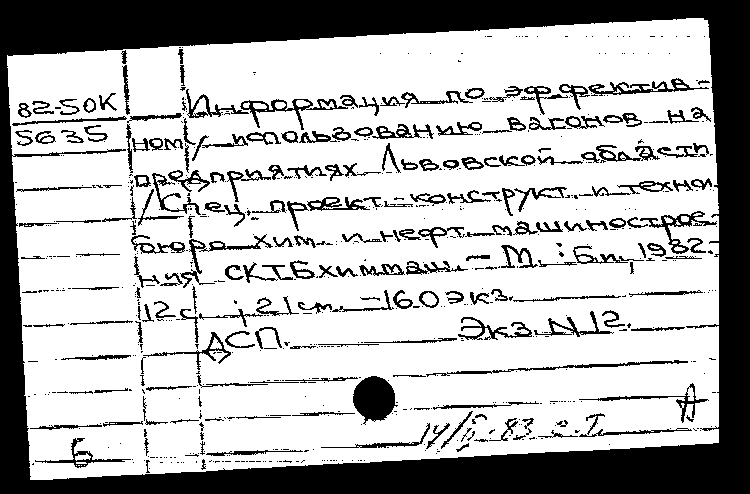 82-50К
5635
Информация по эффектив-
ному использованию вагонов на
предприятиях Львовской области
/Спец. проект.-конструкт. и техни.
бюро хим. и нефт. машинострое-
ния СКТБхиммаш. - М. : Би, 1982.-
12 с. ; 21 см. - 160 экз.
ДСП. Экз. N 12.
А
14/II-83 г. Т.
Б